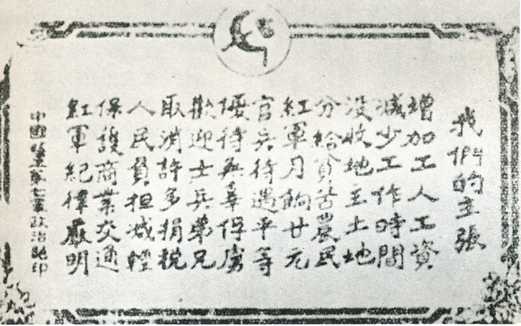 我們的主張
增加工人工資
減少工作時間
沒收地主土地
分給貧苦農民
紅軍月餉廿元
官兵待遇平等
優待無辜俘虜
歡迎士兵弟兄
取消許多捐稅
人民負担減輕
保護商業交通
紅軍紀律嚴明
中國軍第七軍政治部印